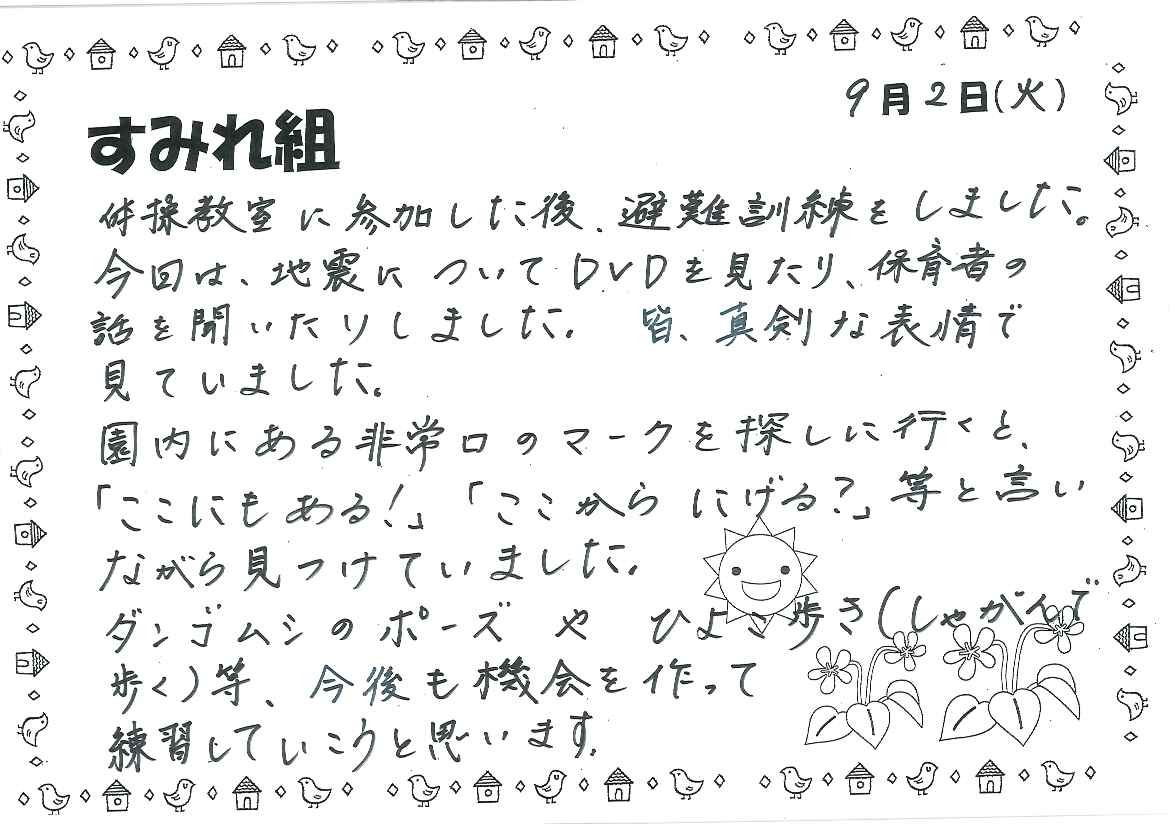 9月2日(火)
すみれ組
体操教室に参加した後、避難訓練をしました。
今回は、地震について DVDを見たり、保育者の
話を聞いたりしました。 皆、真剣な表情で
見ていました。
園内にある非常口のマークを探しに行くと、
「ここにもある!」「ここから にげる?」等と言い
ながら見つけていました。
ダンゴムシのポーズ や ひよこ歩き(しゃがんで
歩く)等、今後も機会を作って
練習していこうと思います。